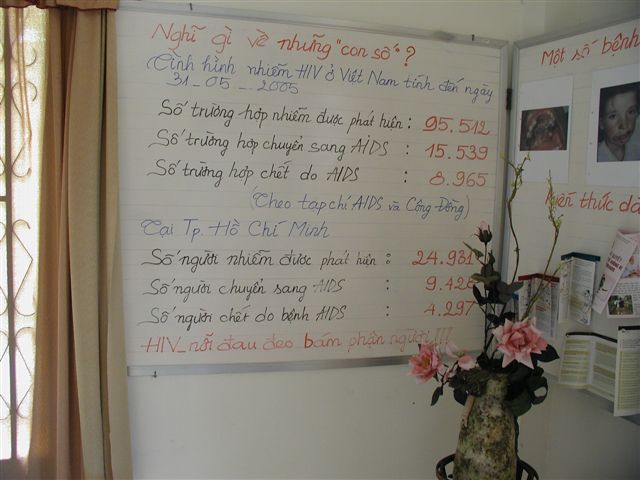 Nghĩ gì về những "con số"?
Tình hình nhiễm HIV ở Việt Nam tính đến ngày
31-05-2005
Số trường hợp nhiễm được phát hiện : 95.512
Số trường hợp chuyển sang AIDS : 15.539
Số trường hợp chết do AIDS : 8.965
(Theo tạp chí AIDS và Cộng Đồng)
Tại Tp. Hồ Chí Minh
Số người nhiễm được phát hiện : 24.931
Số người chuyển sang AIDS : 9.428
Số người chết do bệnh AIDS : 4.297
HIV_nỗi đau đeo bám phận người!!!
Một số bệnh
Kiến thức